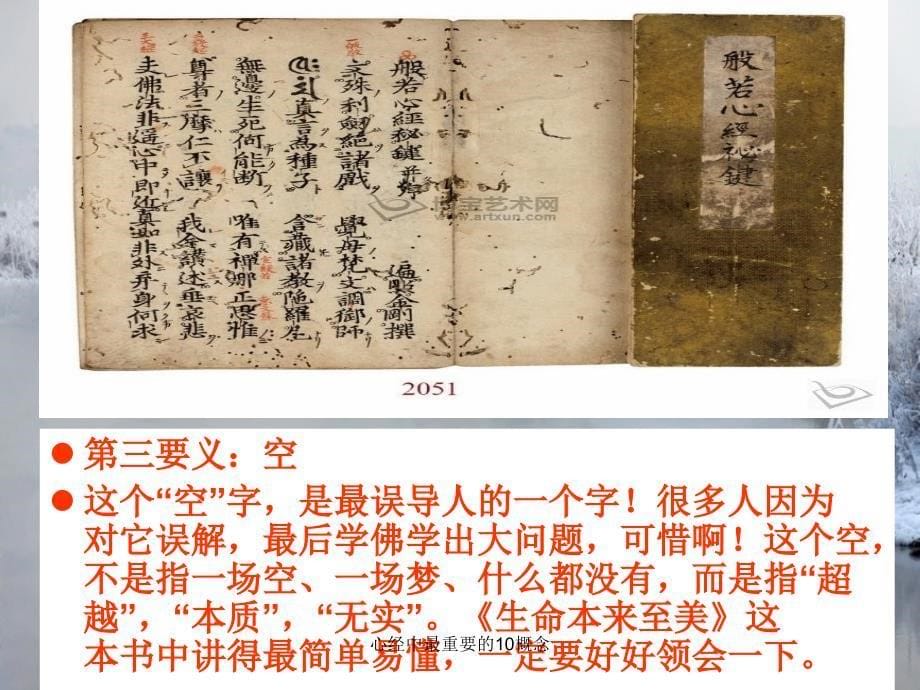 般若心經秘鍵
般若心經秘鍵 并序 遍照金剛撰
文殊利劍絕諸戲 覺母梵文調御師
真言為種子 含藏諸教陀羅尼
無邊生死何能斷 唯有禪那正思惟
尊者三摩仁不讓 我今讚述垂哀悲
夫佛法非遙心中即近真如非外弃身何求
博宝艺术网
www.artxun.com
2051
第三要义：空
这个“空”字，是最误导人的一个字！很多人因为
对它误解，最后学佛学出大问题，可惜啊！这个空，
不是指一场空、一场梦、什么都没有，而是指“超
越”，“本质”，“无实”。《生命本来至美》这
本书中讲得最简单易懂，一定要好好领会一下。
心经中最重要的10概念